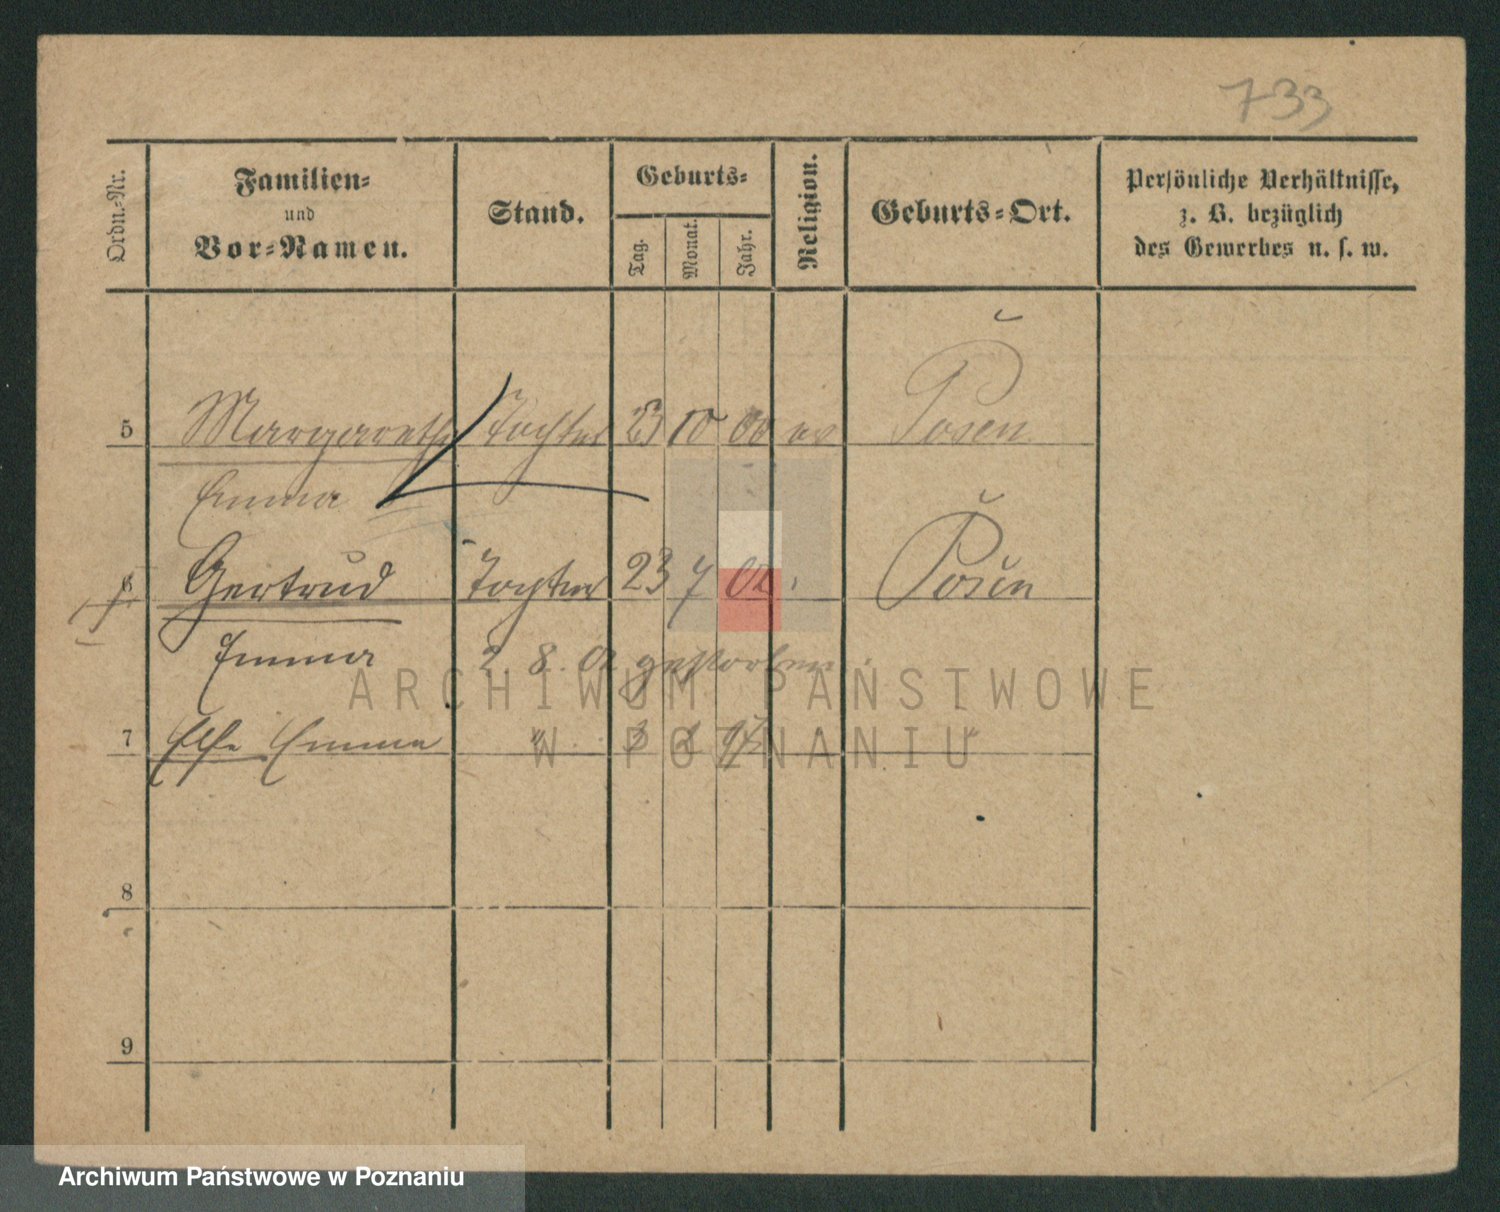 733
Ordn.-Nr.
Familien-
und
Vor-Namen.
Stand.
Geburts-
Tag.
Monat.
Jahr.
Religion.
Geburts-Ort.
Persönliche Verhältnisse,
z. B. bezüglich
des Gewerbes u. s. w.
5 Margarethe Tochter 23 10 00 ev Posen
Emma
6 Gertrud Tochter 23 7 02 Posen
† Emma 2 8. 02 gestorben
7 Else Emma "
8
9
ARCHIWUM PAŃSTWOWE
W POZNANIU
Archiwum Państwowe w Poznaniu